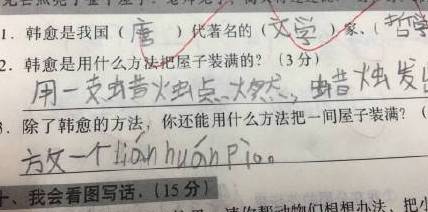 1. 韩愈是我国（唐）代著名的（文学）家、（哲学
2. 韩愈是用什么方法把屋子装满的？（3分）
用一支蜡烛点燃，蜡烛发出
3. 除了韩愈的方法，你还能用什么方法把一间屋子装满？（
放一个lián huán pào。
十、我会看图写话．（15分）